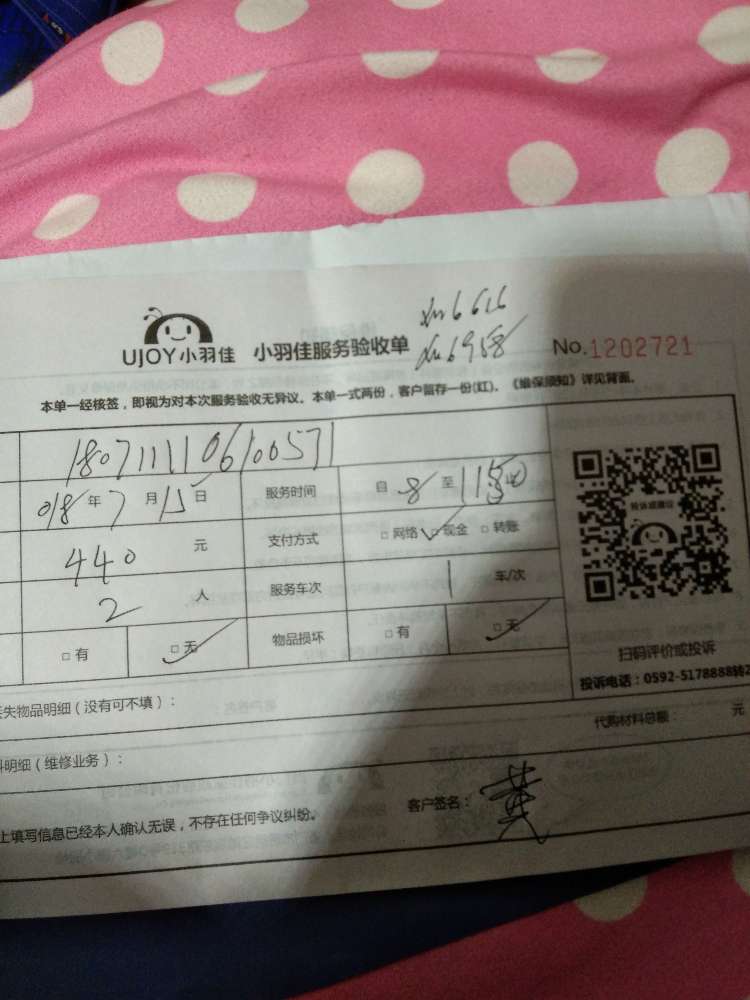 xm6616
UJOY小羽佳 小羽佳服务验收单 xm6958 No.1202721
本单一经核签，即视为对本次服务验收无异议。本单一式两份，客户留存一份(红)。《维保须知》详见背面。
1807111106100571
018年7月15日 服务时间 自8至11
440元 支付方式 □网络 □现金 □转账
投诉或建议
2人 服务车次 1 车/次
□有 □无 物品损坏 □有 □无
扫码评价或投诉
投诉电话：0592-5178888转2
失物品明细（没有可不填）：
代购材料总额： 元
料明细（维修业务）：
客户签名：黄
上填写信息已经本人确认无误，不存在任何争议纠纷。